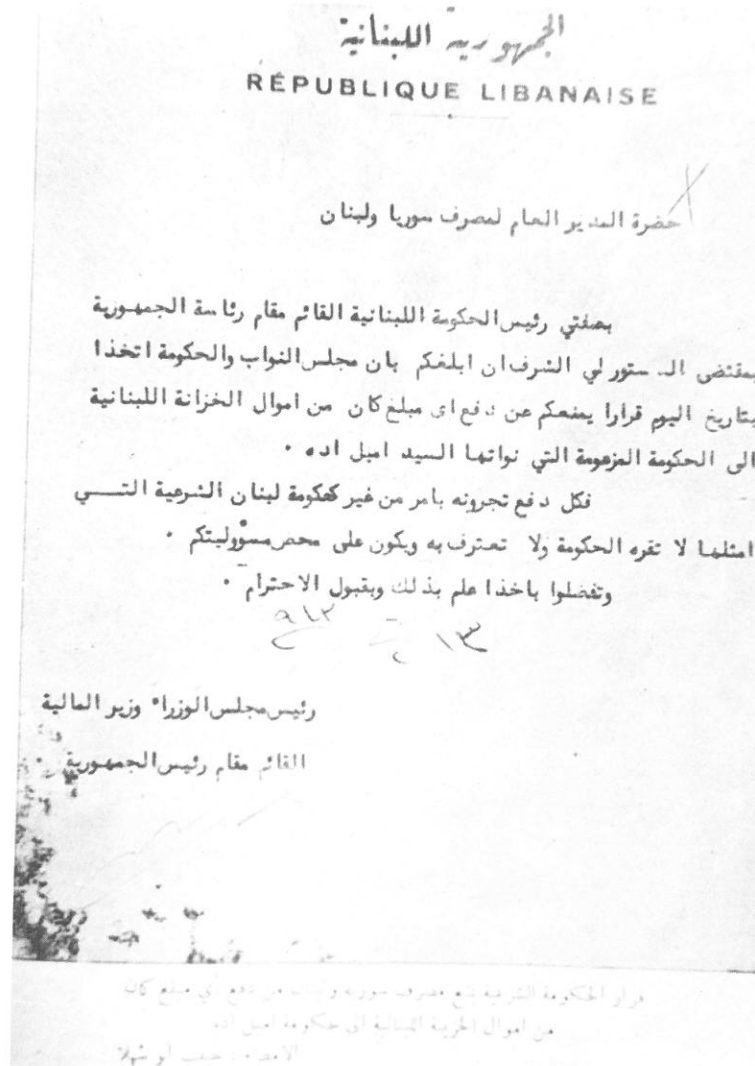 الجمهورية اللبنانية
RÉPUBLIQUE LIBANAISE
حضرة المدير العام لمصرف سوريا ولبنان
بصفتي رئيس الحكومة اللبنانية القائم مقام رئاسة الجمهورية
بمقتضى الدستور لي الشرف ان ابلغكم بان مجلس النواب والحكومة اتخذا
بتاريخ اليوم قرارا يمنعكم عن دفع اى مبلغ كان من اموال الخزانة اللبنانية
الى الحكومة المزعومة التي نواتها السيد اميل اده .
فكل دفع تجرونه بامر من غير حكومة لبنان الشرعية التــــي
امثلها لا تقره الحكومة ولا تعترف به ويكون على محض مسؤوليتكم .
وتفضلوا باخذا علم بذلك وبقبول الاحترام .
١٣
رئيس مجلس الوزراء وزير المالية
القائم مقام رئيس الجمهورية
قرار الحكومة الشرعية بمنع مصرف سورية ولبنان من دفع أي مبلغ كان
من اموال الخزينة اللبنانية الى حكومة اميل اده
الامضاء : حبيب ابو شهلا